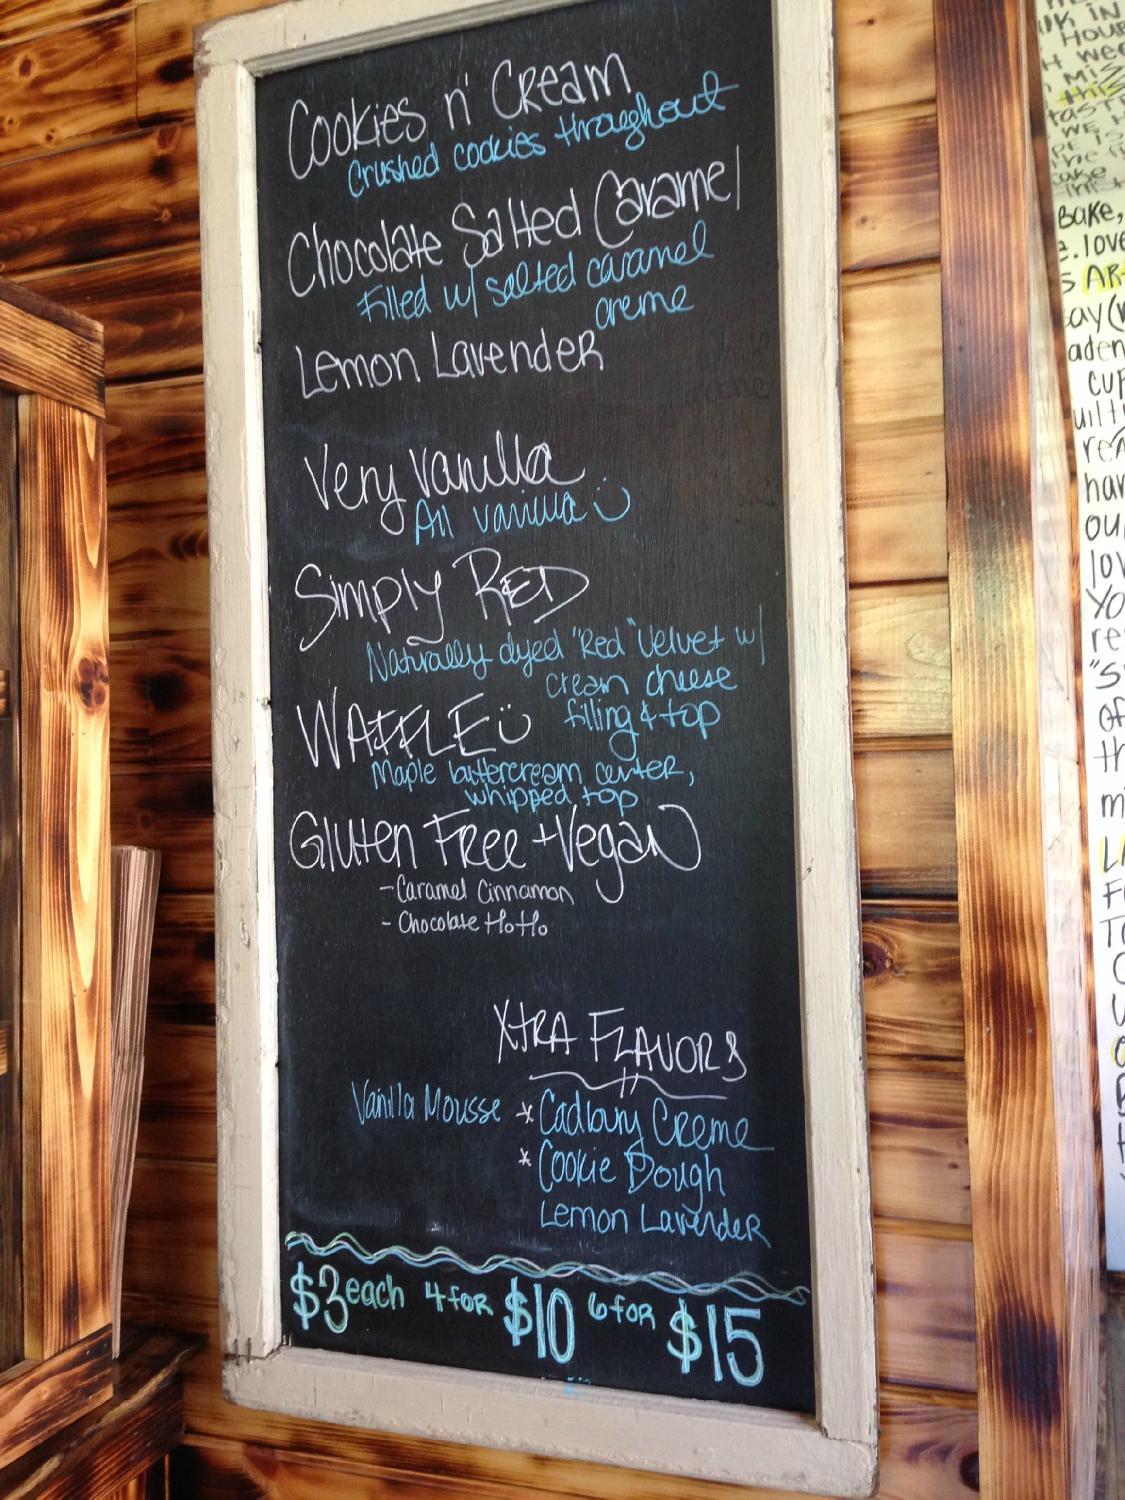 Cookies n' Cream
Crushed cookies throughout
Chocolate Salted Caramel
Filled w/ salted caramel
creme
Lemon Lavender
Very Vanilla
All vanilla
Simply RED
Naturally dyed "Red" Velvet w/
cream cheese
filling & top
WAFFLE
Maple buttercream center,
whipped top
Gluten Free + Vegan
- Caramel Cinnamon
- Chocolate HoHo
XTRA FLAVORS
Vanilla Mousse * Cadbury Creme
* Cookie Dough
Lemon Lavender
$3 each 4 for $10 6 for $15
IN
HOUR
this
WE
Bake,
love
CUP
our
YO
OF